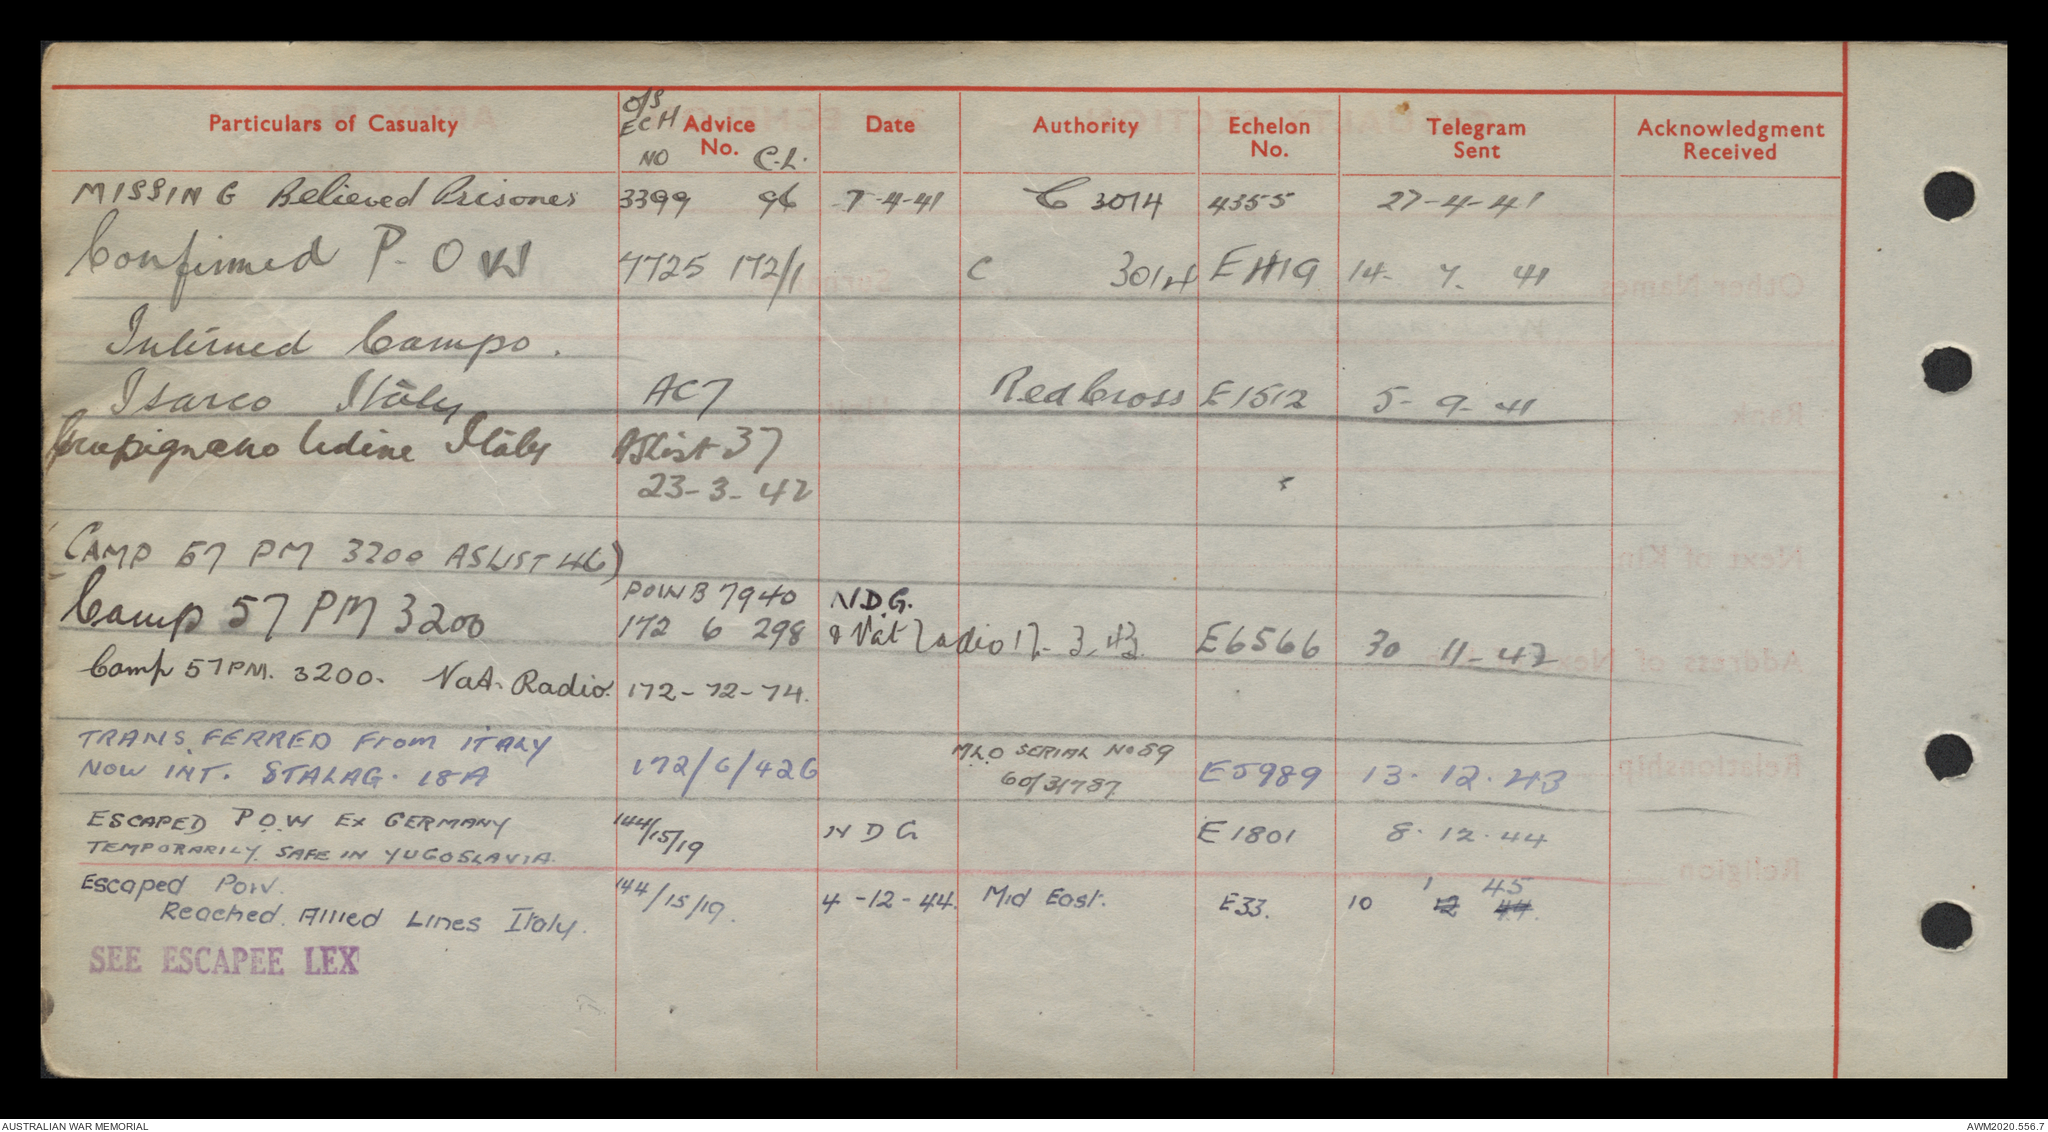 Particulars of Casualty O/S ECH NO Advice No. C.L. Date Authority Echelon No. Telegram Sent Acknowledgment Received
MISSING Believed Prisoner 3399 96 7-4-41 C 3014 4355 27-4-41
Confirmed P.O W 7725 172/1 C 3014 E 1419 14- 7. 41
Interned Campo.
Isarco Italy AC7 Red Cross E1512 5- 9- 41
Grupignano Udine Italy ASList 37
23-3-42
(CAMP 57 PM 3200 ASLIST 46)
Camp 57 PM 3200 POWB 7940 N.D.G.
172 6 298 & Nat Radio 12-3-43 E6566 30 11-42
Camp 57 PM. 3200. Nat. Radio. 172-72-74.
TRANSFERRED From ITALY M.L.O SERIAL No 89
NOW INT. STALAG. 18A 172/6/426 60/31787 E5989 13.12.43
ESCAPED P.O.W EX GERMANY 144/15/19 N D G E1801 8.12.44
TEMPORARILY SAFE IN YUGOSLAVIA.
Escaped Pow. 144/15/19. 4-12-44. Mid East. E33. 10 12 1 44. 45
Reached Allied Lines Italy.
SEE ESCAPEE LEX
AUSTRALIAN WAR MEMORIAL AWM2020.556.7